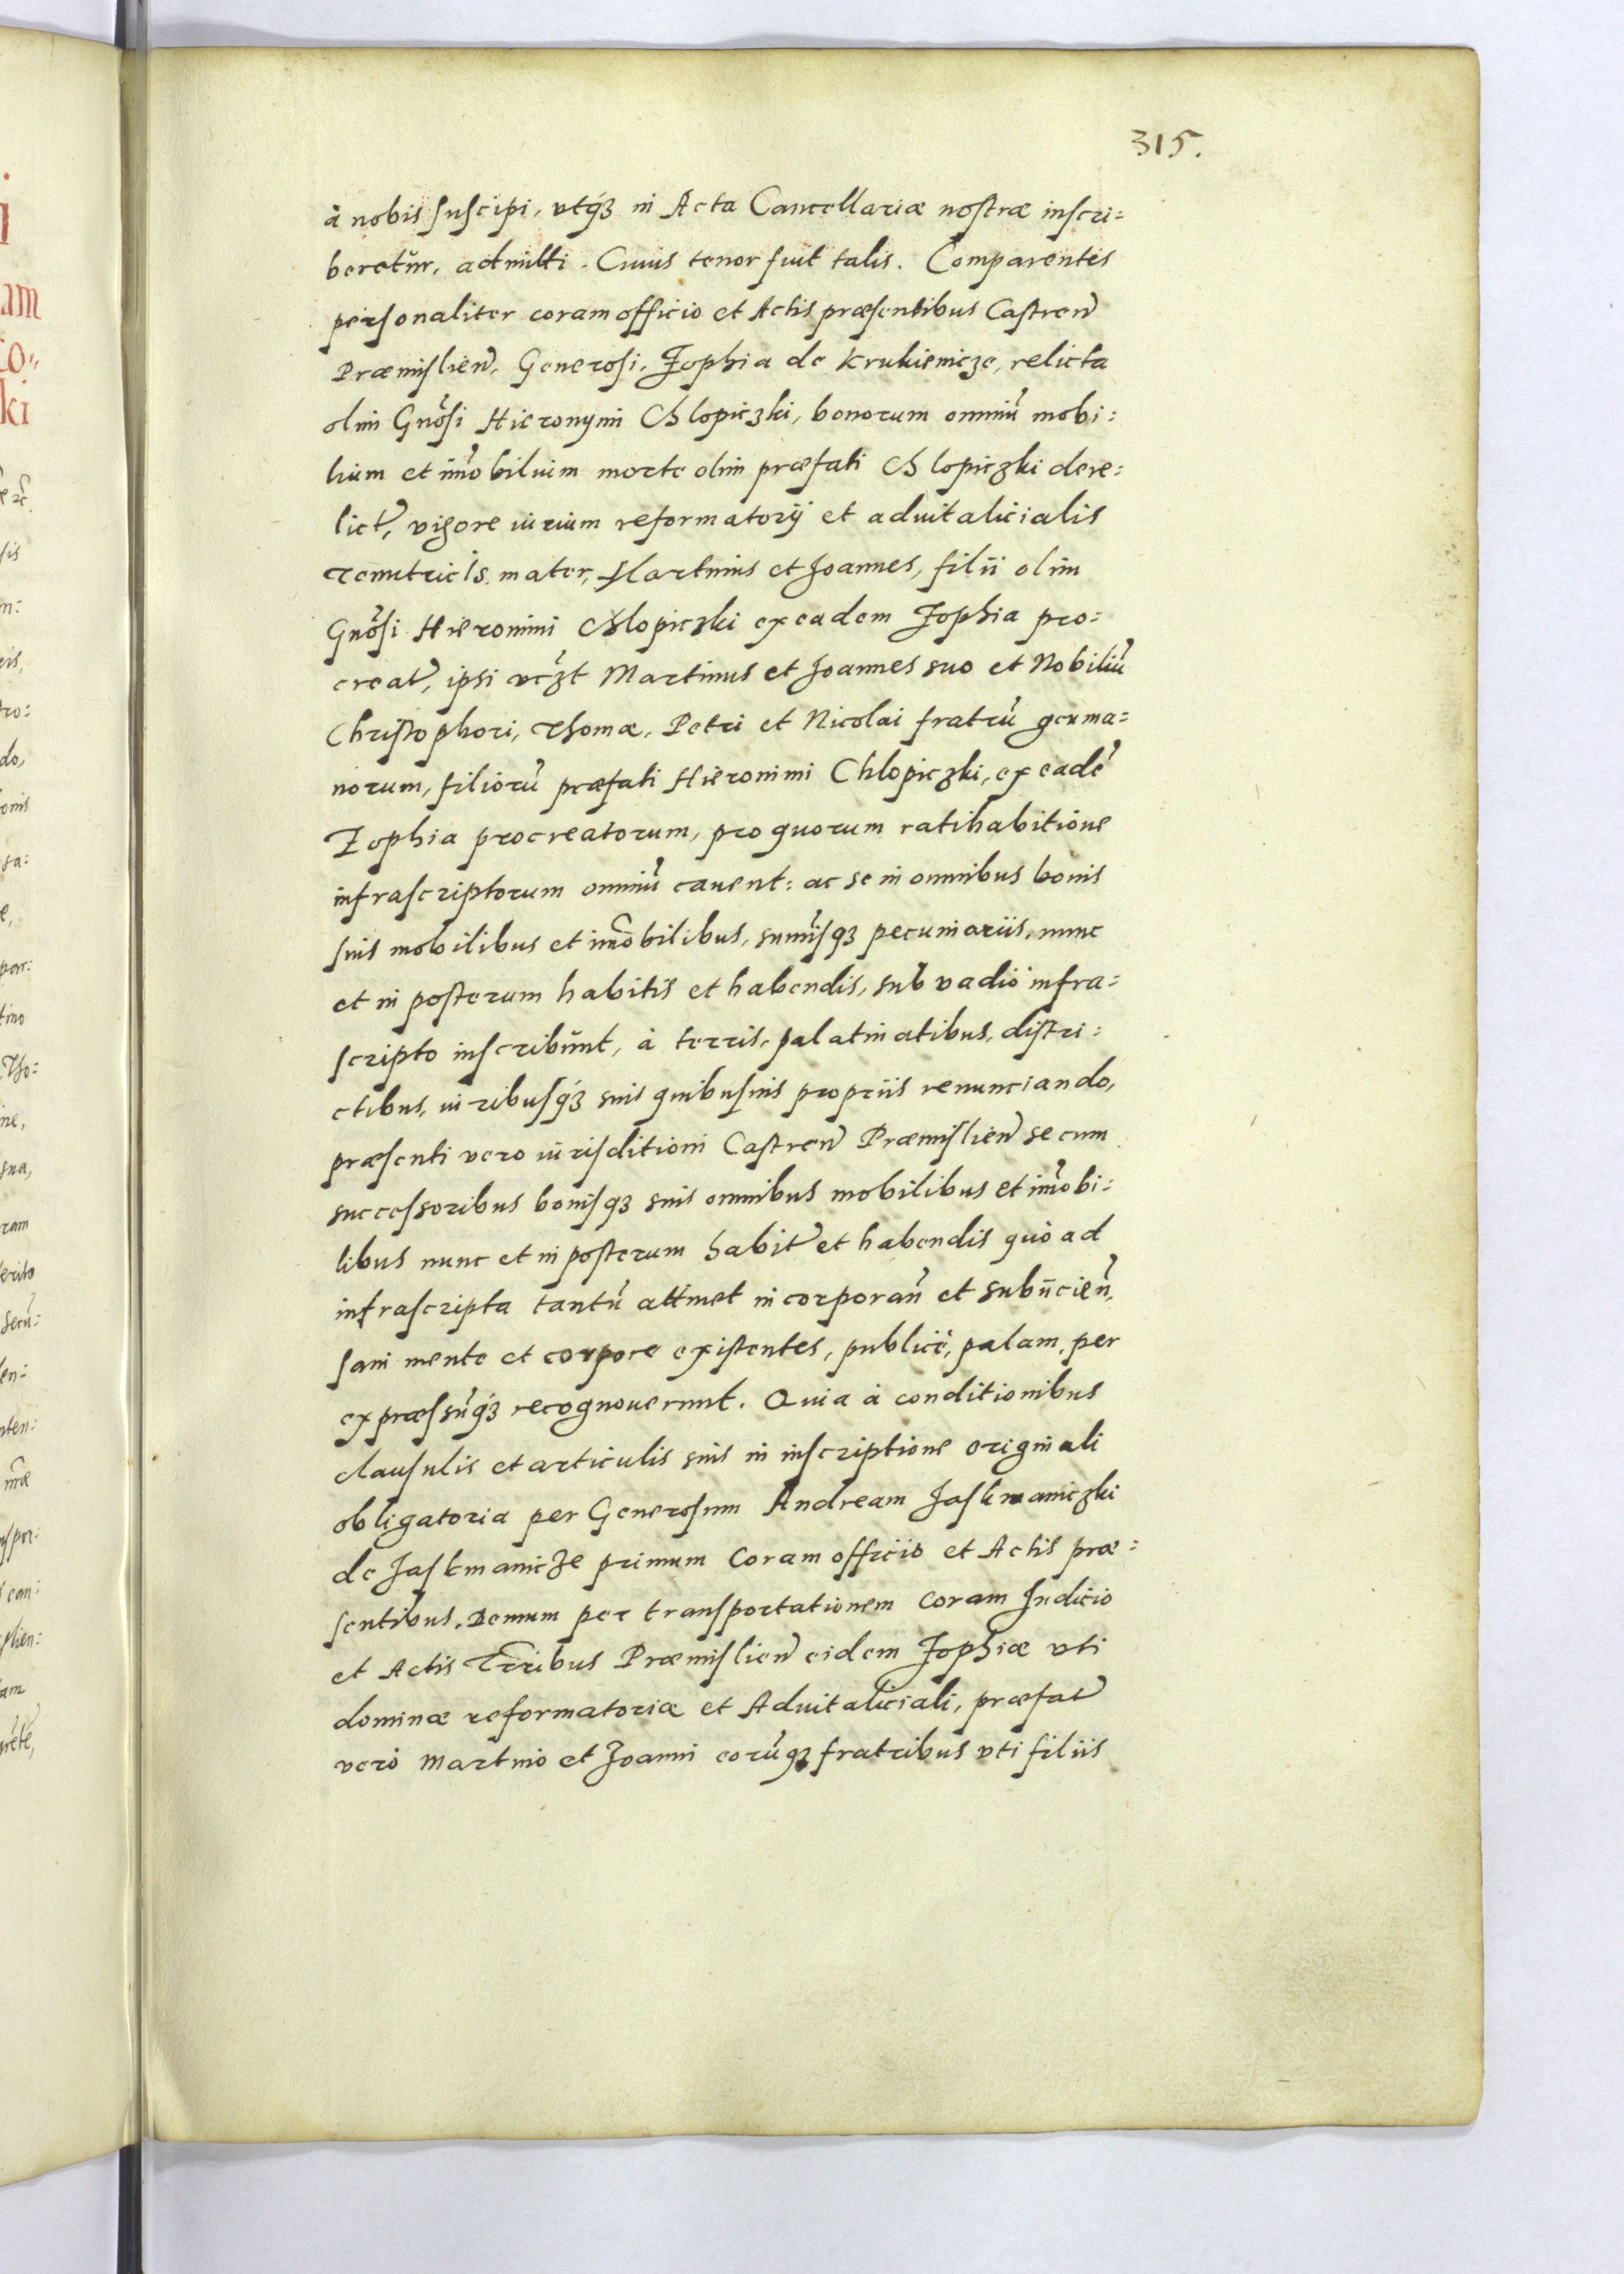 315.
à nobis suscipi, vtq́3 in Acta Cancellariæ nostræ inscri=
beretur, admitti. Cuius tenor fuit talis. Comparentes
personaliter coram officio et Actis præsentibus Castren̄
Præmislien̄, Generosi, Zophia de Krukienicze, relicta
olim Gnōsi Hieronymi Chlopiczki, bonorum omniū mobi:
lium et im̄obilium morte olim præfati Chlopiczki dere:
lict̄, vigore iurium reformatorij et aduitalicialis
tenutrix mater, Martinus et Joannes, filii olim
Gnōsi Hieronimi Chlopiczki ex eadem Zophia pro:
creat̄, ipsi vc̄zt Martinus et Joannes suo et Nobiliū
Christophori, Thomæ, Petri et Nicolai fratrū germa=
norum, filiorū præfati Hieronimi Chlopiczki, ex eadē
Zophia procreatorum, pro quorum ratihabitione
infrascriptorum omniū cauent: ac se in omnibus bonis
suis mobilibus et im̄obilibus, sum̄isq3 pecuniariis, nunc
et in posterum habitis et habendis, sub vadio infra=
scripto inscribunt, à terris, palatinatibus, distri:
ctibus, iuribusq́3 suis quibusuis propriis renunciando,
præsenti vero iurisditioni Castren̄ Præmislien̄ se cum
successoribus bonisq3 suis omnibus mobilibus et im̄obi:
libus nunc et in posterum habit̄ et habendis quò ad
infrascripta tantū attinet incorporan̄ et subiicien̄,
sani mente et corpore existentes, publicè, palam, per
expressūq́3 recognouerunt. Quia à conditionibus
clausulis et articulis suis in inscriptione originali
obligatoria per Generosum Andream Jaskmaniczki
de Jaskmanicze primum coram officio et Actis præ=
sentibus. Demum per transportationem coram Judicio
et Actis Tr̄ribus Præmislien̄ eidem Zophiæ vti
dominæ reformatoriæ et Aduitaliciali, præfat̄
verò Martino et Joanni eorūq3 fratribus vti filiis